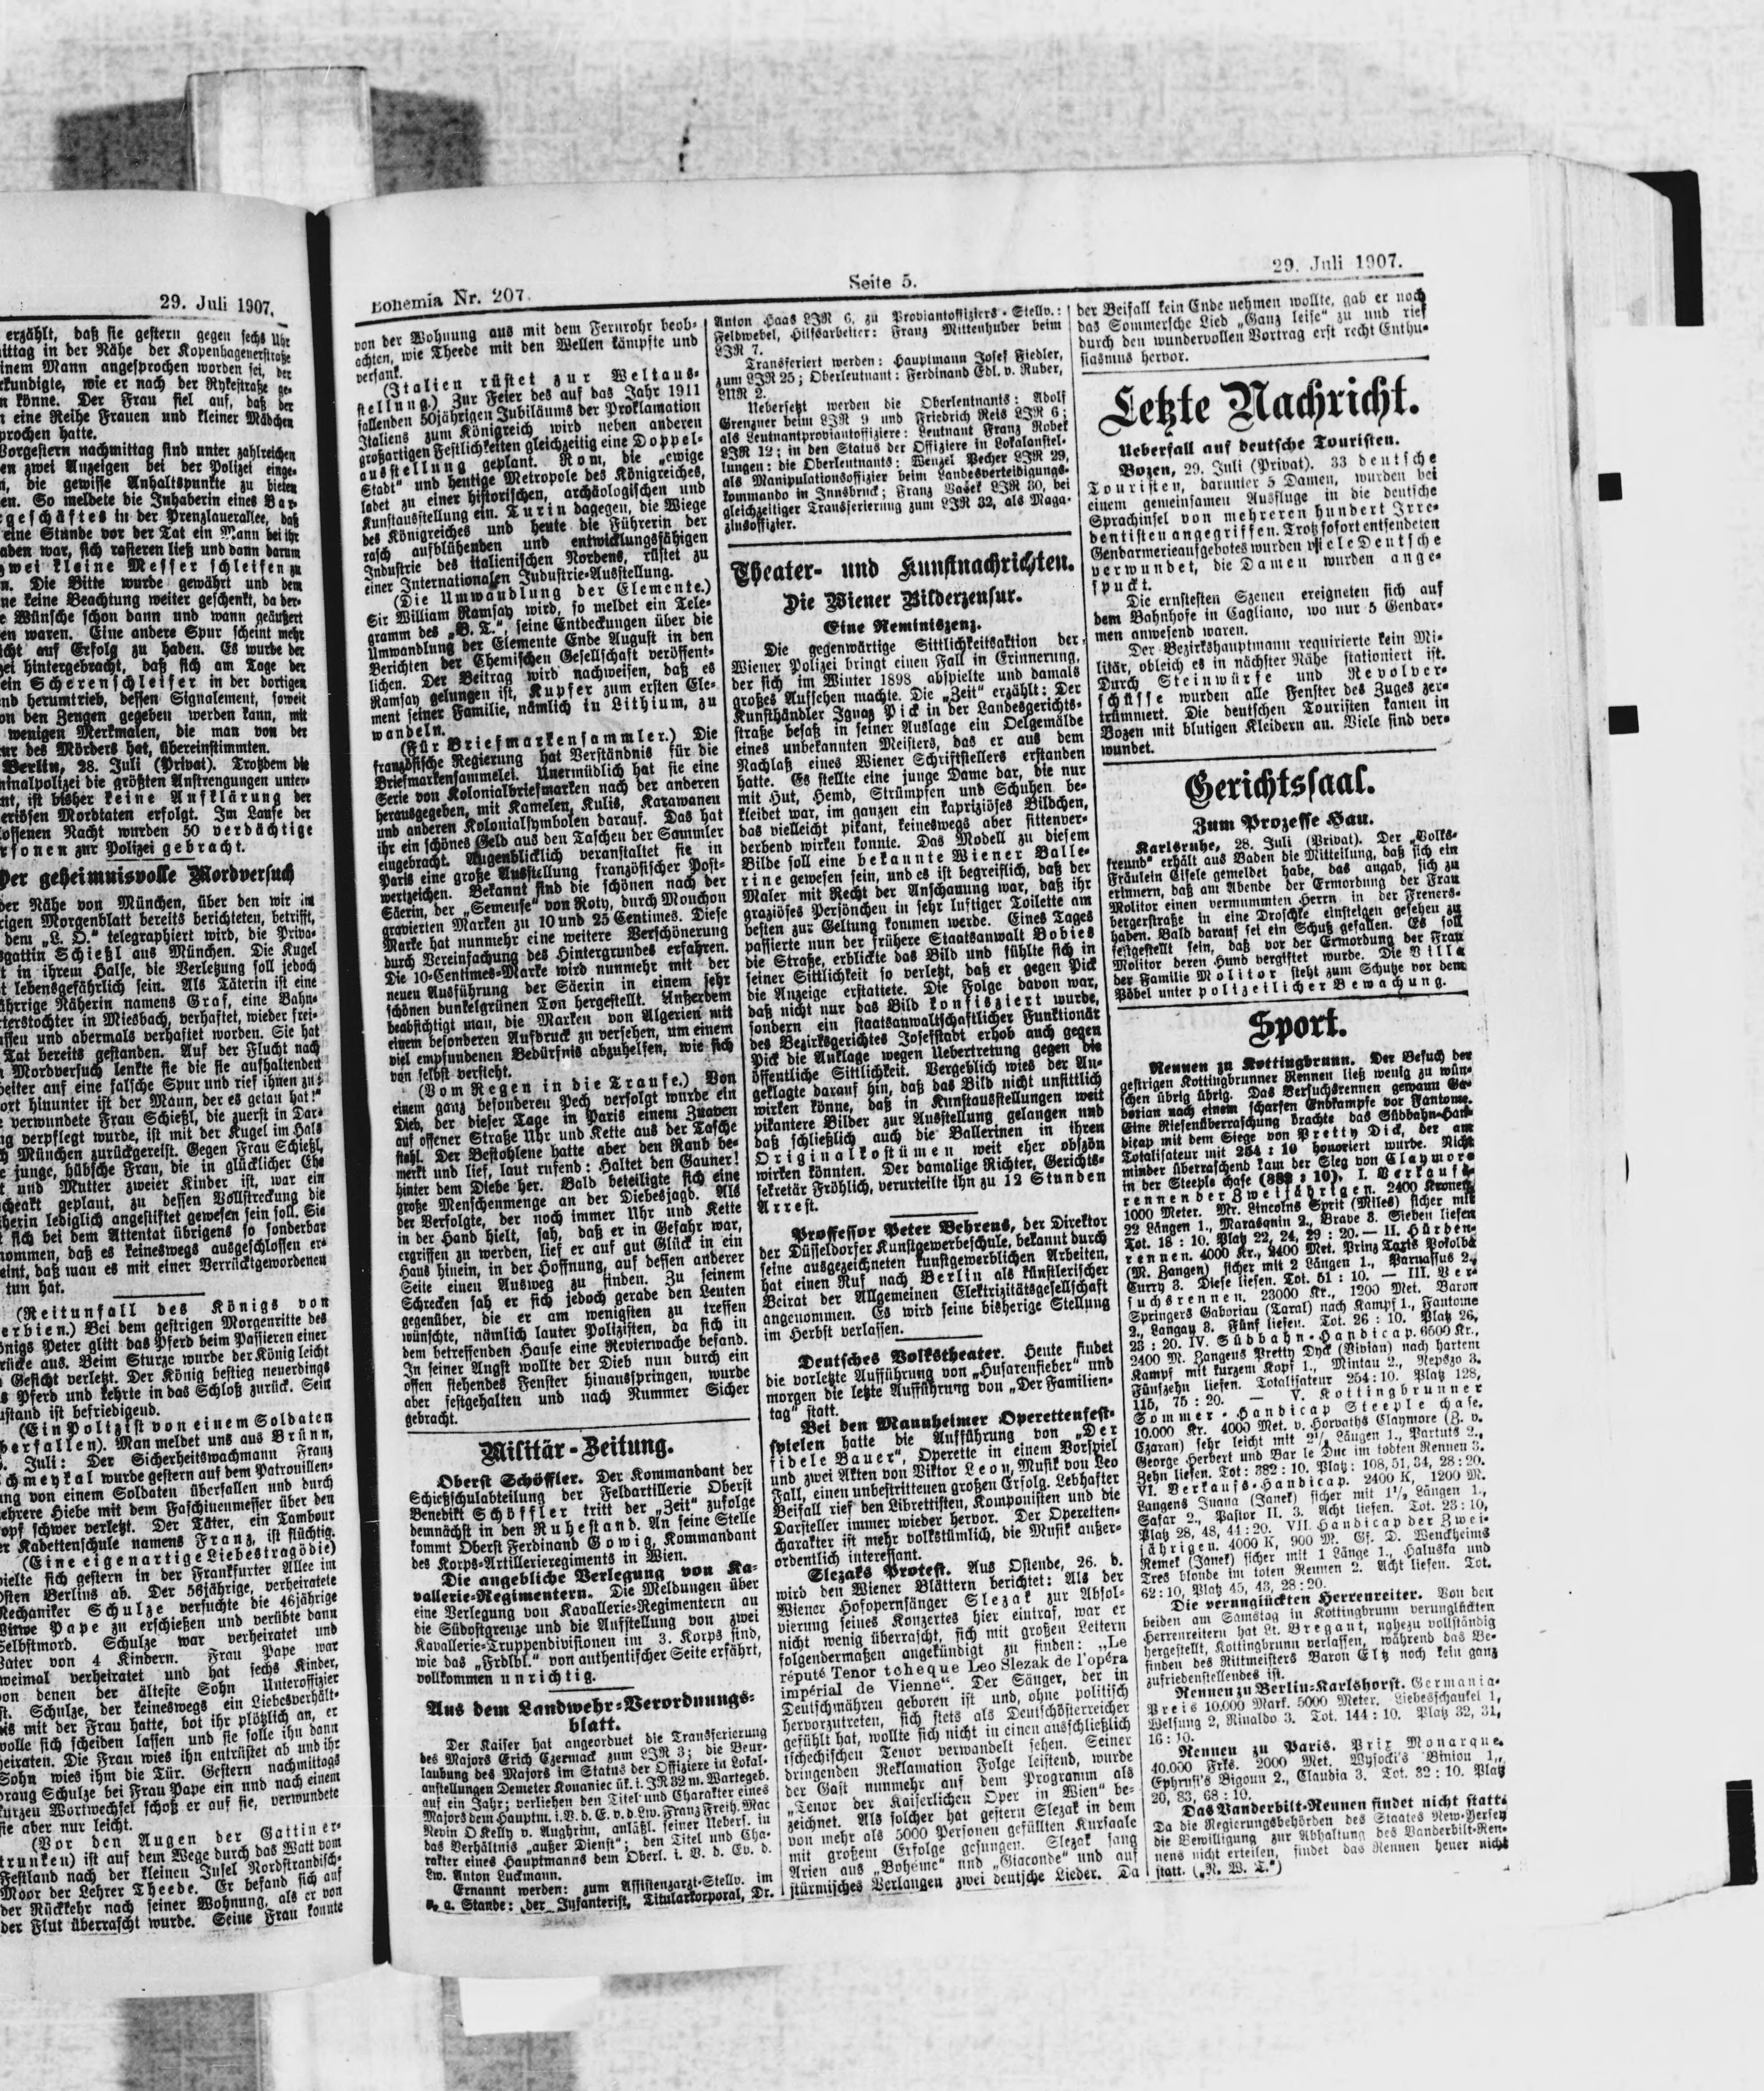 29. Juli 1907.
erzählt, daß sie gestern gegen sechs Uhr
ittag in der Nähe der Kopenhagenerstraße
inem Mann angesprochen worden sei, der
rkundigte, wie er nach der Rykestraße ge-
n könne. Der Frau fiel auf, daß der
eine Reihe Frauen und kleiner Mädchen
prochen hatte.
Vorgestern nachmittag sind unter zahlreichen
en zwei Anzeigen bei der Polizei einge-
n, die gewisse Anhaltspunkte zu bieten
en. So meldete die Inhaberin eines Bar-
geschäftes in der Prenzlauerallee, daß
eine Stunde vor der Tat ein Mann bei ihr
aben war, sich rasieren ließ und dann darum
zwei kleine Messer schleifen zu
n. Die Bitte wurde gewährt und dem
ne keine Beachtung weiter geschenkt, da der-
e Wünsche schon dann und wann geäußert
en waren. Eine andere Spur scheint mehr
icht auf Erfolg zu haben. Es wurde der
zei hintergebracht, daß sich am Tage der
ein Scherenschleifer in der dortigen
nd herumtrieb, dessen Signalement, soweit
on den Zeugen gegeben werden kann, mit
wenigen Merkmalen, die man von der
ur des Mörders hat, übereinstimmten.
Berlin, 28. Juli (Privat). Trotzdem die
ninalpolizei die größten Anstrengungen unter-
nt, ist bisher keine Aufklärung der
erissen Mordtaten erfolgt. Im Laufe der
loffenen Nacht wurden 50 verdächtige
rsonen zur Polizei gebracht.
Der geheimnisvolle Mordversuch
der Nähe von München, über den wir im
rigen Morgenblatt bereits berichteten, betrifft,
dem „L. O.“ telegraphiert wird, die Priva-
sgattin Schießl aus München. Die Kugel
t in ihrem Halse, die Verletzung soll jedoch
t lebensgefährlich sein. Als Täterin ist eine
ährrige Näherin namens Graf, eine Bahn-
terstochter in Miesbach, verhaftet, wieder frei-
ffen und abermals verhaftet worden. Sie hat
Tat bereits gestanden. Auf der Flucht nach
Mordversuch lenkte sie die sie aufhaltenden
beiter auf eine falsche Spur und rief ihnen zu:
ort hinunter ist der Mann, der es getan hat!“
verwundete Frau Schießl, die zuerst in Dar-
ig verpflegt wurde, ist mit der Kugel im Hals
h München zurückgereist. Gegen Frau Schießl,
e junge, hübsche Frau, die in glücklicher Ehe
t und Mutter zweier Kinder ist, war ein
cheakt geplant, zu dessen Vollstreckung die
herin lediglich angestiftet gewesen sein soll. Sie
t sich bei dem Attentat übrigens so sonderbar
nommen, daß es keineswegs ausgeschlossen er-
eint, daß man es mit einer Verrücktgewordenen
tun hat.
(Reitunfall des Königs von
erbien.) Bei dem gestrigen Morgenritte des
önigs Peter glitt das Pferd beim Passieren einer
rücke aus. Beim Sturze wurde der König leicht
Gesicht verletzt. Der König bestieg neuerdings
s Pferd und kehrte in das Schloß zurück. Sein
ustand ist befriedigend.
(Ein Polizist von einem Soldaten
berfallen). Man meldet uns aus Brünn,
. Juli: Der Sicherheitswachmann Franz
chmeykal wurde gestern auf dem Patrouillen-
ang von einem Soldaten überfallen und durch
ehrere Hiebe mit dem Faschinenmesser über den
opf schwer verletzt. Der Täter, ein Tambour
er Kadettenschule namens Franz, ist flüchtig.
(Eine eigenartige Liebestragödie)
pielte sich gestern in der Frankfurter Allee im
Osten Berlins ab. Der 56jährige, verheiratete
Mechaniker Schulze versuchte die 46jährige
Witwe Pape zu erschießen und verübte dann
Selbstmord. Schulze war verheiratet und
Vater von 4 Kindern. Frau Pape war
zweimal verheiratet und hat sechs Kinder,
von denen der älteste Sohn Unteroffizier
st. Schulze, der keineswegs ein Liebesverhält-
nis mit der Frau hatte, bot ihr plötzlich an, er
wolle sich scheiden lassen und sie solle ihn dann
heiraten. Die Frau wies ihn entrüstet ab und ihr
Sohn wies ihm die Tür. Gestern nachmittags
drang Schulze bei Frau Pape ein und nach einem
kurzen Wortwechsel schoß er auf sie, verwundete
sie aber nur leicht.
(Vor den Augen der Gattin er-
trunken) ist auf dem Wege durch das Watt vom
Festland nach der kleinen Insel Nordstrandisch-
Moor der Lehrer Theede. Er befand sich auf
der Rückkehr nach seiner Wohnung, als er von
der Flut überrascht wurde. Seine Frau konnte
Bohemia Nr. 207.
Seite 5.
29. Juli 1907.
von der Wohnung aus mit dem Fernrohr beob-
achten, wie Theede mit den Wellen kämpfte und
versank.
(Italien rüstet zur Weltaus-
stellung.) Zur Feier des auf das Jahr 1911
fallenden 50jährigen Jubiläums der Proklamation
Italiens zum Königreich wird neben anderen
großartigen Festlichkeiten gleichzeitig eine Doppel-
ausstellung geplant. Rom, die „ewige
Stadt“ und heutige Metropole des Königreiches,
ladet zu einer historischen, archäologischen und
Kunstausstellung ein. Turin dagegen, die Wiege
des Königreiches und heute die Führerin der
rasch aufblühenden und entwicklungsfähigen
Industrie des italienischen Nordens, rüstet zu
einer Internationalen Industrie-Ausstellung.
(Die Umwandlung der Elemente.)
Sir William Ramsay wird, so meldet ein Tele-
gramm des „B. T.“, seine Entdeckungen über die
Umwandlung der Elemente Ende August in den
Berichten der Chemischen Gesellschaft veröffent-
lichen. Der Beitrag wird nachweisen, daß es
Ramsay gelungen ist, Kupfer zum ersten Ele-
ment seiner Familie, nämlich in Lithium, zu
wandeln.
(Für Briefmarkensammler.) Die
französische Regierung hat Verständnis für die
Briefmarkensammelei. Unermüdlich hat sie eine
Serie von Kolonialbriefmarken nach der anderen
herausgegeben, mit Kamelen, Kulis, Karawanen
und anderen Kolonialsymbolen darauf. Das hat
ihr ein schönes Geld aus den Taschen der Sammler
eingebracht. Augenblicklich veranstaltet sie in
Paris eine große Ausstellung französischer Post-
wertzeichen. Bekannt sind die schönen nach der
Säerin, der „Semeuse“ von Roty, durch Mouchon
gravierten Marken zu 10 und 25 Centimes. Diese
Marke hat nunmehr eine weitere Verschönerung
durch Vereinfachung des Hintergrundes erfahren.
Die 10-Centimes-Marke wird nunmehr mit der
neuen Ausführung der Säerin in einem sehr
schönen dunkelgrünen Ton hergestellt. Außerdem
beabsichtigt man, die Marken von Algerien mit
einem besonderen Aufdruck zu versehen, um einem
viel empfundenen Bedürfnis abzuhelfen, wie sich
von selbst versteht.
(Vom Regen in die Traufe.) Von
einem ganz besonderen Pech verfolgt wurde ein
Dieb, der dieser Tage in Paris einem Zuaven
auf offener Straße Uhr und Kette aus der Tasche
stahl. Der Bestohlene hatte aber den Raub be-
merkt und lief, laut rufend: Haltet den Gauner!
hinter dem Diebe her. Bald beteiligte sich eine
große Menschenmenge an der Diebesjagd. Als
der Verfolgte, der noch immer Uhr und Kette
in der Hand hielt, sah, daß er in Gefahr war,
ergriffen zu werden, lief er auf gut Glück in ein
Haus hinein, in der Hoffnung, auf dessen anderer
Seite einen Ausweg zu finden. Zu seinem
Schrecken sah er sich jedoch gerade den Leuten
gegenüber, die er am wenigsten zu treffen
wünschte, nämlich lauter Polizisten, da sich in
dem betreffenden Hause eine Revierwache befand.
In seiner Angst wollte der Dieb nun durch ein
offen stehendes Fenster hinausspringen, wurde
aber festgehalten und nach Nummer Sicher
gebracht.
Militär-Zeitung.
Oberst Schöffler. Der Kommandant der
Schießschulabteilung der Feldartillerie Oberst
Benedikt Schöffler tritt der „Zeit“ zufolge
demnächst in den Ruhestand. An seine Stelle
kommt Oberst Ferdinand Gowig, Kommandant
des Korps-Artillerieregiments in Wien.
Die angebliche Verlegung von Ka-
vallerie-Regimentern. Die Meldungen über
eine Verlegung von Kavallerie-Regimentern an
die Südostgrenze und die Aufstellung von zwei
Kavallerie-Truppendivisionen im 3. Korps sind,
wie das „Frdlbl.“ von authentischer Seite erfährt,
vollkommen unrichtig.
Aus dem Landwehr-Verordnungs-
blatt.
Der Kaiser hat angeordnet die Transferierung
des Majors Erich Czermack zum LJR 3; die Beur-
laubung des Majors im Status der Offiziere in Lokal-
anstellungen Demeter Konaniec ük. i. JR 32 m. Wartegeb.
auf ein Jahr; verliehen den Titel und Charakter eines
Majors dem Hauptm. i. V. d. E. v. d. Lw. Franz Freih. Mac
Nevin O Kelly v. Aughrim, anläßl. seiner Uebers. in
das Verhältnis „außer Dienst“; den Titel und Cha-
rakter eines Hauptmanns dem Oberl. i. V. d. Ev. d.
Lw. Anton Luckmann.
Ernannt werden: zum Assistenzarzt-Stellv. im
v. a. Stande: der Infanterist, Titularkorporal, Dr.
Anton Haas LJR 6, zu Proviantoffiziers-Stellv.:
Feldwebel, Hilfsarbeiter: Franz Mittenhuber beim
LJR 7.
Transferiert werden: Hauptmann Josef Fiedler,
zum LJR 25; Oberleutnant: Ferdinand Edl. v. Ruber,
LUR 2.
Uebersetzt werden die Oberleutnants: Adolf
Grenzner beim LJR 9 und Friedrich Reis LJR 6;
als Leutnantproviantoffiziere: Leutnant Franz Robek
LJR 12; in den Status der Offiziere in Lokalanstel-
lungen: die Oberleutnants: Wenzel Pecher LJR 29,
als Manipulationsoffizier beim Landesverteidigungs-
kommando in Innsbruck; Franz Vašek LJR 30, bei
gleichzeitiger Transferierung zum LJR 32, als Maga-
zinsoffizier.
Theater- und Kunstnachrichten.
Die Wiener Bilderzensur.
Eine Reminiszenz.
Die gegenwärtige Sittlichkeitsaktion der
Wiener Polizei bringt einen Fall in Erinnerung,
der sich im Winter 1898 abspielte und damals
großes Aufsehen machte. Die „Zeit“ erzählt: Der
Kunsthändler Ignaz Pick in der Landesgerichts-
straße besaß in seiner Auslage ein Oelgemälde
eines unbekannten Meisters, das er aus dem
Nachlaß eines Wiener Schriftstellers erstanden
hatte. Es stellte eine junge Dame dar, die nur
mit Hut, Hemd, Strümpfen und Schuhen be-
kleidet war, im ganzen ein kapriziöses Bildchen,
das vielleicht pikant, keineswegs aber sittenver-
derbend wirken konnte. Das Modell zu diesem
Bilde soll eine bekannte Wiener Balle-
rine gewesen sein, und es ist begreiflich, daß der
Maler mit Recht der Anschauung war, daß ihr
graziöses Persönchen in sehr luftiger Toilette am
besten zur Geltung kommen werde. Eines Tages
passierte nun der frühere Staatsanwalt Bobies
die Straße, erblickte das Bild und fühlte sich in
seiner Sittlichkeit so verletzt, daß er gegen Pick
die Anzeige erstattete. Die Folge davon war,
daß nicht nur das Bild konfisziert wurde,
sondern ein staatsanwaltschaftlicher Funktionär
des Bezirksgerichtes Josefstadt erhob auch gegen
Pick die Anklage wegen Uebertretung gegen die
öffentliche Sittlichkeit. Vergeblich wies der An-
geklagte darauf hin, daß das Bild nicht unsittlich
wirken könne, daß in Kunstausstellungen weit
pikantere Bilder zur Ausstellung gelangen und
daß schließlich auch die Ballerinen in ihren
Originalkostümen weit eher obszön
wirken könnten. Der damalige Richter, Gerichts-
sekretär Fröhlich, verurteilte ihn zu 12 Stunden
Arrest.
Proffessor Peter Behrens, der Direktor
der Düsseldorfer Kunstgewerbeschule, bekannt durch
seine ausgezeichneten kunstgewerblichen Arbeiten,
hat einen Ruf nach Berlin als künstlerischer
Beirat der Allgemeinen Elektrizitätsgesellschaft
angenommen. Es wird seine bisherige Stellung
im Herbst verlassen.
Deutsches Volkstheater. Heute findet
die vorletzte Aufführung von „Husarenfieber“ und
morgen die letzte Aufführung von „Der Familien-
tag“ statt.
Bei den Mannheimer Operettenfest-
spielen hatte die Aufführung von „Der
fidele Bauer“, Operette in einem Vorspiel
und zwei Akten von Viktor Leon, Musik von Leo
Fall, einen unbestrittenen großen Erfolg. Lebhafter
Beifall rief den Librettisten, Komponisten und die
Darsteller immer wieder hervor. Der Operetten-
charakter ist mehr volkstümlich, die Musik außer-
ordentlich interessant.
Slezaks Protest. Aus Ostende, 26. d.
wird den Wiener Blättern berichtet: Als der
Wiener Hofopernsänger Slezak zur Absol-
vierung seines Konzertes hier eintraf, war er
nicht wenig überrascht, sich mit großen Leitern
folgendermaßen angekündigt zu finden: „Le
réputé Tenor tcheque Leo Slezak de l'opéra
impérial de Vienne“. Der Sänger, der in
Deutschmähren geboren ist und, ohne politisch
hervorzutreten, sich stets als Deutschösterreicher
gefühlt hat, wollte sich nicht in einen ausschließlich
tschechischen Tenor verwandelt sehen. Seiner
dringenden Reklamation Folge leistend, wurde
der Gast nunmehr auf dem Programm als
„Tenor der Kaiserlichen Oper in Wien“ be-
zeichnet. Als solcher hat gestern Slezak in dem
von mehr als 5000 Personen gefüllten Kursaale
mit großem Erfolge gesungen. Slezak sang
Arien aus „Bohéme“ und „Giaconde“ und auf
stürmisches Verlangen zwei deutsche Lieder. Da
der Beifall kein Ende nehmen wollte, gab er noch
das Sommersche Lied „Ganz leise“ zu und rief
durch den wundervollen Vortrag erst recht Enthu-
siasmus hervor.
Letzte Nachricht.
Ueberfall auf deutsche Touristen.
Bozen, 29. Juli (Privat). 33 deutsche
Touristen, darunter 5 Damen, wurden bei
einem gemeinsamen Ausfluge in die deutsche
Sprachinsel von mehreren hundert Irre-
dentisten angegriffen. Trotz sofort entsendeten
Gendarmerieaufgebotes wurden viele Deutsche
verwundet, die Damen wurden ange-
spuckt.
Die ernstesten Szenen ereigneten sich auf
dem Bahnhofe in Cagliano, wo nur 5 Gendar-
men anwesend waren.
Der Bezirkshauptmann requirierte kein Mi-
litär, obleich es in nächster Nähe stationiert ist.
Durch Steinwürfe und Revolver-
schüsse wurden alle Fenster des Zuges zer-
trümmert. Die deutschen Touristen kamen in
Bozen mit blutigen Kleidern an. Viele sind ver-
wundet.
Gerichtssaal.
Zum Prozesse Hau.
Karlsruhe, 28. Juli (Privat). Der „Volks-
freund“ erhält aus Baden die Mitteilung, daß sich ein
Fräulein Eisele gemeldet habe, das angab, sich zu
erinnern, daß am Abende der Ermordung der Frau
Molitor einen vermummten Herrn in der Freners-
bergerstraße in eine Droschke einsteigen gesehen zu
haben. Bald darauf sei ein Schuß gefallen. Es soll
festgestellt sein, daß vor der Ermordung der Frau
Molitor deren Hund vergiftet wurde. Die Villa
der Familie Molitor steht zum Schutze vor dem
Pöbel unter polizeilicher Bewachung.
Sport.
Rennen zu Kottingbrunn. Der Besuch der
gestrigen Kottingbrunner Rennen ließ wenig zu wün-
schen übrig übrig. Das Versuchsrennen gewann Ga-
borian nach einem scharfen Endkampfe vor Fantome.
Eine Riesenüberraschung brachte das Südbahn-Han-
dicap mit dem Siege von Pretty Dick, der am
Totalisateur mit 254 : 10 honoriert wurde. Nicht
minder überraschend kam der Sieg von Claymore
in der Steeple chase (382 : 10). I. Verkaufs-
rennen der Zweijährigen. 2400 Kronen,
1000 Meter. Mr. Lincolns Sprit (Miles) sicher mit
22 Längen 1., Marasquin 2., Brave 3. Sieben liefen
Tot. 18 : 10. Platz 22, 24, 29 : 20. — II. Hürden-
rennen. 4000 Kr., 2400 Met. Prinz Taxis Pokolba
(M. Zangen) sicher mit 2 Längen 1., Parnassus 2.,
Curry 3. Diese liefen. Tot. 51 : 10. — III. Ver-
suchsrennen. 23000 Kr., 1200 Met. Baron
Springers Gaboriau (Taral) nach Kampf 1., Fantome
2., Langau 3. Fünf liefen. Tot. 26 : 10. Platz 26,
23 : 20. IV. Südbahn-Handicap. 6500 Kr.,
2400 M. Zangens Pretty Dyck (Vivian) nach hartem
Kampf mit kurzem Kopf 1., Mintau 2., Repszo 3.
Fünfzehn liefen. Totalisateur 254 : 10. Platz 128,
115, 75 : 20. — V. Kottingbrunner
Sommer-Handicap Steeple chase.
10.000 Kr. 4000 Met. v. Horvaths Claymore (Z. v.
Czaran) sehr leicht mit 2½ Längen 1., Partuts 2.,
George Herbert und Bar le Duc im todten Rennen 3.
Zehn liefen. Tot: 382 : 10. Platz: 108, 51, 34, 28 : 20.
VI. Verkaufs-Handicap. 2400 K, 1200 M.
Langens Juana (Janek) sicher mit 1½ Längen 1.,
Safar 2., Pastor II. 3. Acht liefen. Tot. 23 : 10,
Platz 28, 48, 44 : 20. VII. Handicap der Zwei-
jährigen. 4000 K, 900 M. Gf. D. Wenckheims
Remek (Janek) sicher mit 1 Länge 1., Haluska und
Tres blonde im toten Rennen 2. Acht liefen. Tot.
62 : 10, Platz 45, 43, 28 : 20.
Die verunglückten Herrenreiter. Von den
beiden am Samstag in Kottingbrunn verunglückten
Herrenreitern hat Lt. Bregant, nahezu vollständig
hergestellt, Kottingbrunn verlassen, während das Be-
finden des Rittmeisters Baron Eltz noch kein ganz
zufriedenstellendes ist.
Rennen zu Berlin-Karlshorst. Germania-
Preis 10.000 Mark. 5000 Meter. Liebesschaukel 1,
Welfung 2, Rinaldo 3. Tot. 144 : 10. Platz 32, 31,
16 : 10.
Rennen zu Paris. Prix Monarque.
40.000 Frks. 2000 Met. Wysocki's Binion 1.,
Ephrusi's Bigoun 2., Claudia 3. Tot. 32 : 10. Platz
20, 83, 68 : 10.
Das Vanderbilt-Rennen findet nicht statt.
Da die Regierungsbehörden des Staates New-Jersey
die Bewilligung zur Abhaltung des Vanderbilt-Ren-
nens nicht erteilen, findet das Rennen heuer nicht
statt. („N. W. T.“)